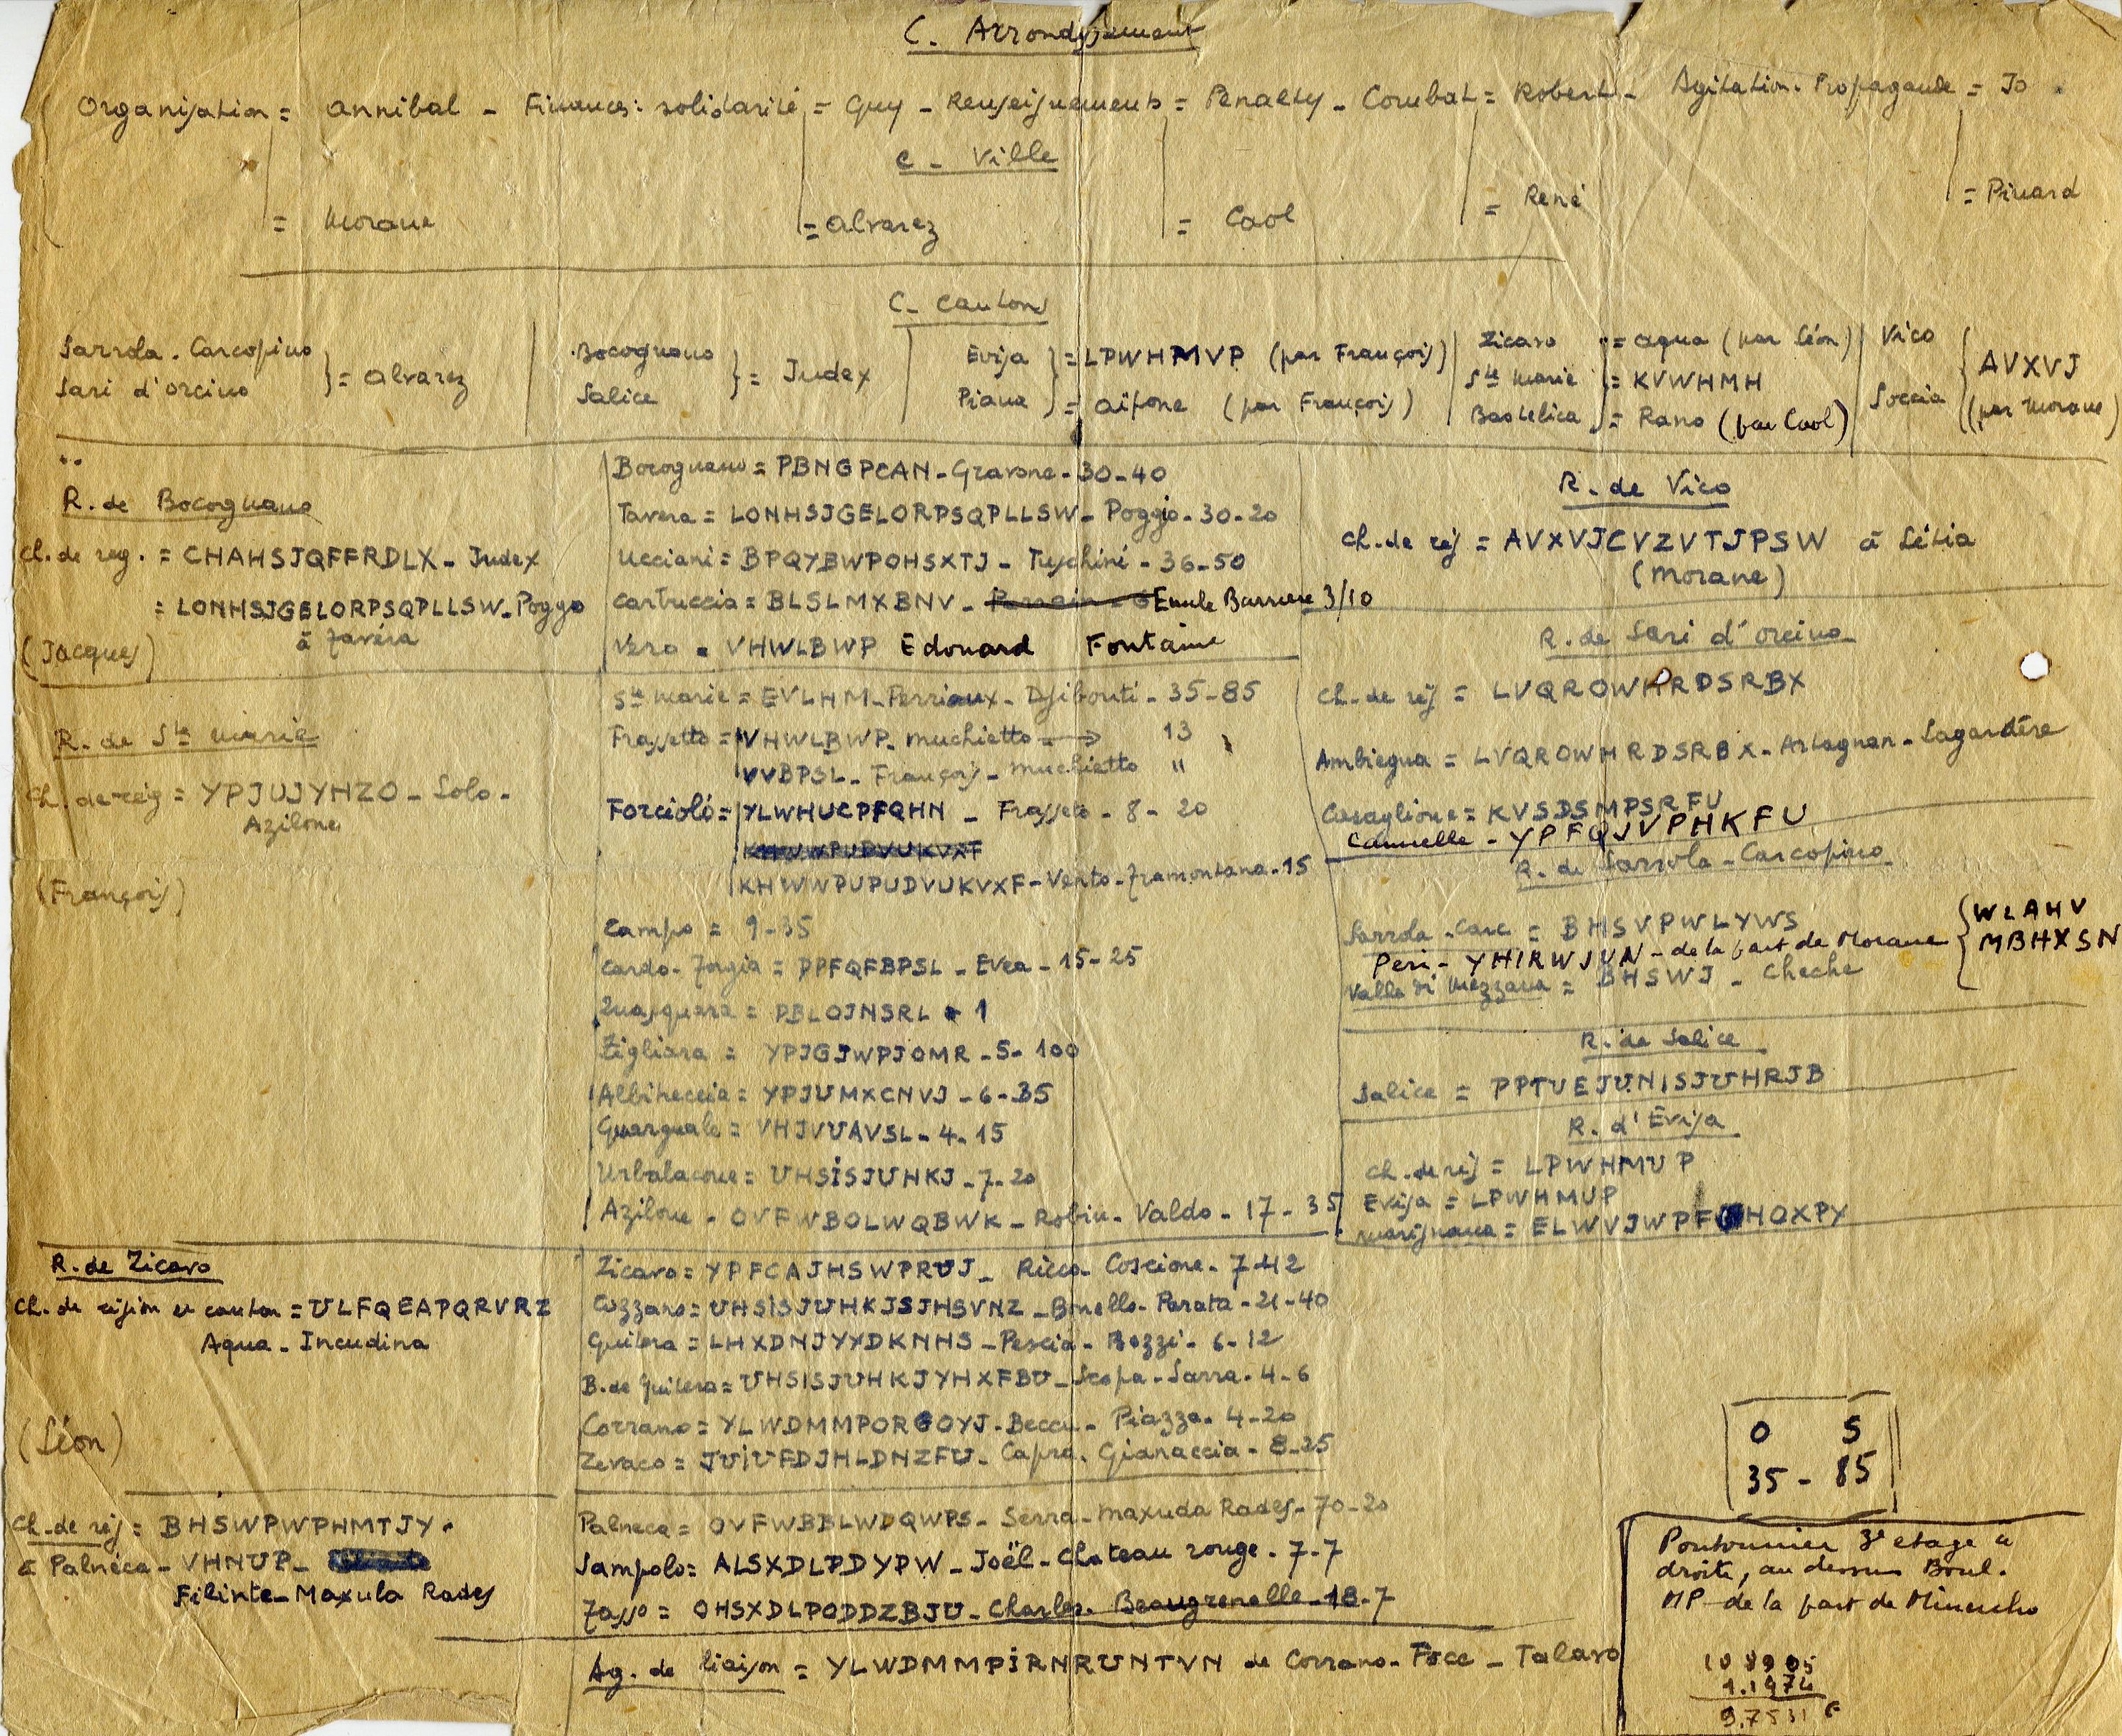 C. Arrondissement
Organisation = Annibal - Finances: solidarité = Guy - Renseignements = Penalty - Combat = Robert - Agitation. Propagande = Jo.
C - Ville
= Morane = Alvarez = Caol = René = Pinard
C - Cantons
Sarrola. Carcopino
Sari d'Orcino } = Alvarez
Bocognano
Salice } = Judex
Evisa } = LPWHMVP (par François)
Piana = Aïfone (par François)
Zicavo = Aqua (par Léon)
Ste Marie = KVWHMH
Bastelica = Rano (par Caol)
Vico
Soccia { AVXVJ
(par Morane)
R. de Bocognano
Ch. de reg. = CHAHSJQFFRDLX - Judex
= LONHSJGELORPSQPLLSW - Poggo
à Tavéra
(Jacques)
Bocognano = PBNGPCAN - Gravone - 30-40
Tavera = LONHSJGELORPSQPLLSW - Poggio - 30-20
Ucciani = BPQYBWPOHSXTJ - Tuschini - 36-50
Carbuccia = BLSLMXBNV - Emile Barriere 3/10
Vero = VHWLBWP Edouard Fontaine
R. de Vico
Ch. de rej = AVXVJCVZVTJPSW à Létia
(Morane)
R. de Sari d'Orcino
Ch. de rej = LVQROWHRDSRBX
Ambiegna = LVQROWHRDSRBX - Artagnan - Lagardère
Casaglione = KVSDSMPSRFU
Cannelle - YPFQJVPHKFU
R. de Sarrola - Carcopino
Sarrola - Carc = BHSVPWLYWS
Peri - YHIRWJUN - de la part de Morane { WLAHV
MBHXSN
Valle di Mezzana = BHSWJ - Cheche
R. de Salice
Salice = PPTUEJUNISJUHRJB
R. d'Evisa
Ch. de rej = LPWHMUP
Evisa = LPWHMUP
Marignana = ELWVJWPF HOXPY
R. de Ste Marie
Ch. de rég = YPJUJYHZO - Solo -
Azilone
(François)
Ste Marie = EVLHM - Perriaux - Djibouti - 35-85
Frassetto = VHWLBWP - Muchietto → 13
VVBPSL - François - Muchietto "
Forcioló = YLWHUCPFQHN - Frasseto - 8 - 20
KHWWPUPUDVUKVXF - Vento - Tramontana - 15
Campo = 9-35
Cardo - Torgia = DPFQFBPSL - Evea - 15-25
Quasquara = PBLOJNSRL - 1
Zigliara = YPJGJWPJOMR - 5 - 100
Albitreccia = YPJUMXCNVJ - 6-35
Guargualé = VHJVUAVSL - 4-15
Urbalacone = UHSISJUHKJ - 7-20
Azilone - OVFWBOLWQBWK - Robin - Valdo - 17 - 35
R. de Zicavo
Ch. de région et canton = ULFQEAPQRVRZ
Aqua - Incudina
(Léon)
Zicavo = YPFCAJHSWPRUJ - Ricca Coscione - 7-42
Cozzano = UHSISJUHKJSJHSVNZ - Bonello - Parata - 21-40
Guitera = LHXDNJYYDKNHS - Pescia - Bozzi - 6-12
B. de Guitera = UHSISJUHKJYHXFBU - Scopa - Sarra - 4-6
Corrano = YLWDMMPORGOYJ - Beccu - Piazza - 4-20
Zevaco = JUIUFDJHLDNZFU - Capra - Gianaccia - 8-25
Ch. de rej = BHSWPWPHMTJY -
à Palnéca - VHNUP -
Filinte - Maxula Rades
Palneca = OVFWBBLWDQWPS - Serra - Maxuda Rades - 70-20
Sampolo = ALSXDLPDYPW - Joël - Chateau rouge - 7-7
Tasso = OHSXDLPODDZBJU - Charles - Beaugrenelle - 18-7
Ag. de liaison = YLWDMMPIRNRUNTVN de Corrano - Foce - Talavo
0 5
35 - 85
Pontonnier 3e etage à
droite, au dessus Boul.
MP - de la part de Minucho